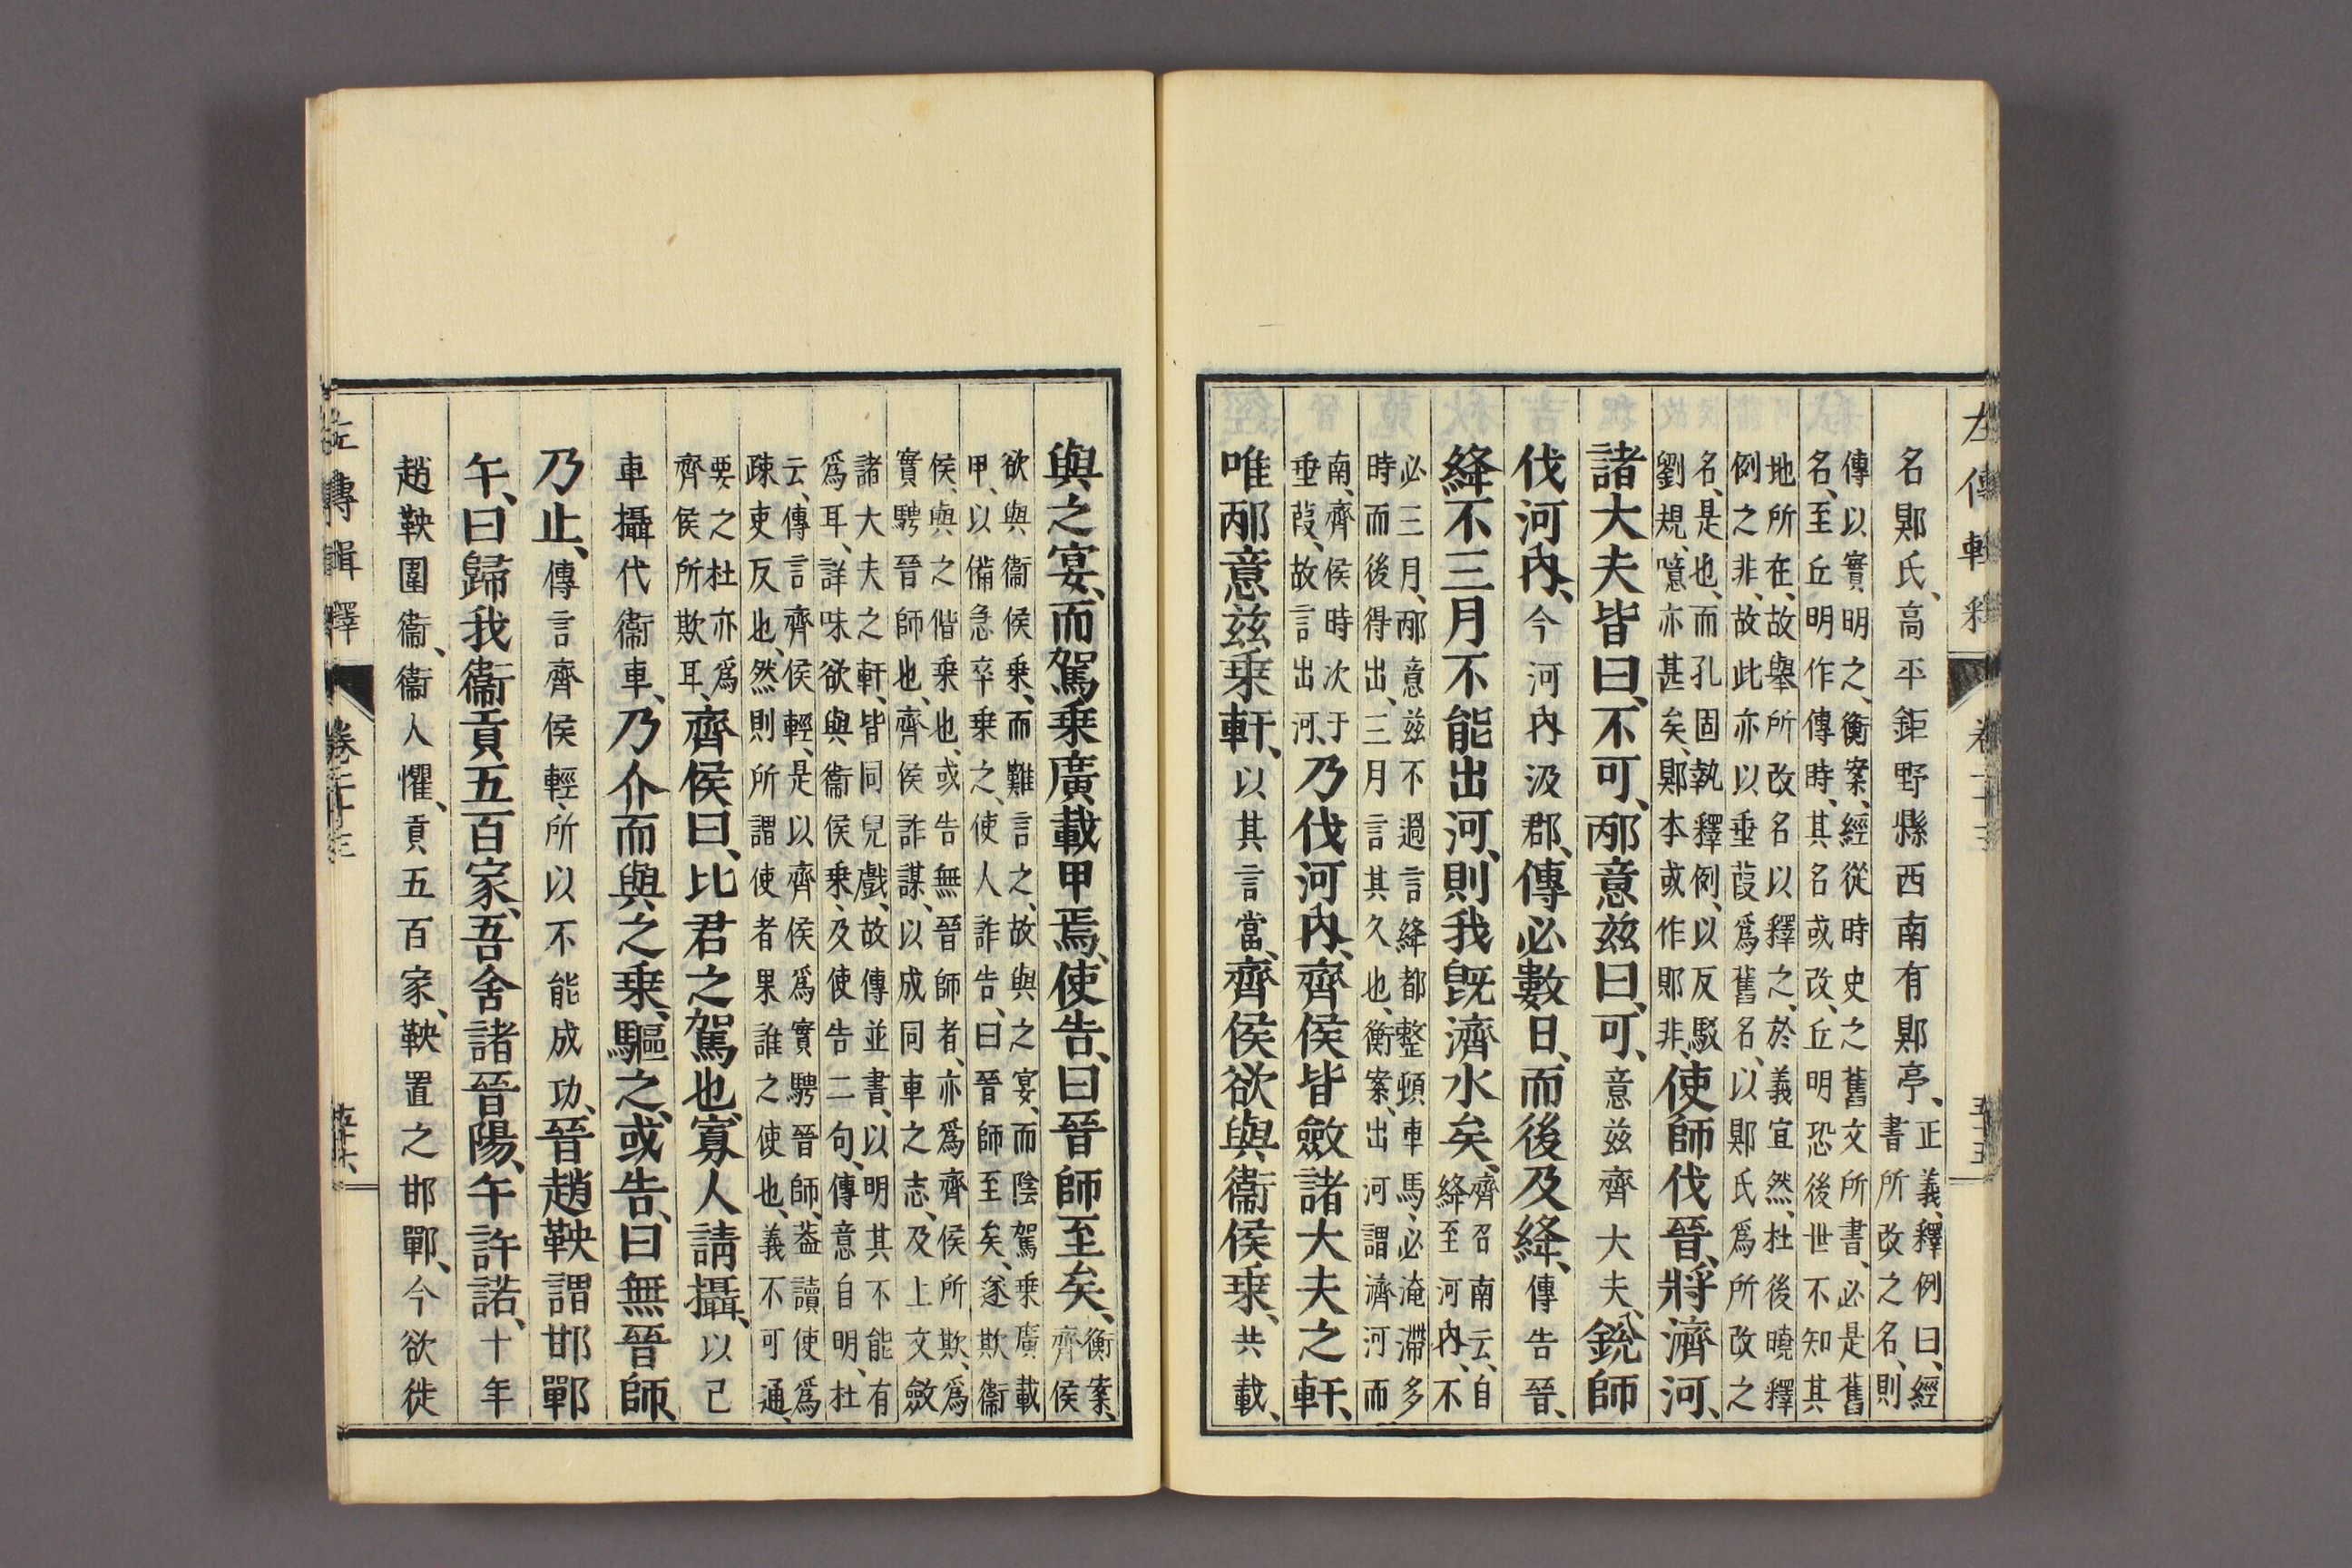 左傳輯釋 卷二十三 五十五
名郹氏、高平鉅野縣西南有郹亭、正義、釋例曰、經
書所改之名、則
傳以實明之、衡案、經從時史之舊文所書、必是舊
名、至丘明作傳時、其名或改、丘明恐後世不知其
地所在、故舉所改名以釋之、於義宜然、杜後曉釋
例之非、故此亦以垂葭爲舊名、以郹氏爲所改之
名、是也、而孔固執釋例、以反駁
劉規、噫亦甚矣、郹本或作郥非、使師伐晉、將濟河、
諸大夫皆曰、不可、邴意茲曰、可、意茲齊大夫、銳師
伐河內、今河內汲郡、傳必數日、而後及絳、傳告晉、
絳不三月不能出河、則我旣濟水矣、齊召南云、自
絳至河內、不
必三月、邴意茲不過言絳都整頓車馬、必淹滯多
時而後得出、三月言其久也、衡案、出河謂濟河而
南、齊侯時次于
垂葭、故言出河、乃伐河內、齊侯皆斂諸大夫之軒、
唯邴意茲乘軒、以其言當、齊侯欲與衞侯乘、共載、
與之宴、而駕乘廣載甲焉、使告、曰晉師至矣、衡案、
齊侯
欲與衞侯乘、而難言之、故與之宴、而陰駕乘廣載
甲、以備急卒乘之、使人詐告、曰晉師至矣、遂欺衞
侯、與之偕乘也、或告無晉師者、亦爲齊侯所欺、爲
實騁晉師也、齊侯詐謀、以成同車之志、及上文斂
諸大夫之軒、皆同兒戲、故傳並書、以明其不能有
爲耳、詳味欲與衞侯乘、及使告二句、傳意自明、杜
云、傳言齊侯輕、是以齊侯爲實騁晉師、葢讀使爲
疎吏反也、然則所謂使者果誰之使也、義不可通、
要之杜亦爲
齊侯所欺耳、齊侯曰、比君之駕也、寡人請攝、以己
車攝代衞車、乃介而與之乘、驅之、或告、曰無晉師、
乃止、傳言齊侯輕、所以不能成功、晉趙鞅謂邯鄲
午、曰歸我衞貢五百家、吾舍諸晉陽、午許諾、十年
趙鞅圍衞、衞人懼、貢五百家、鞅置之邯鄲、今欲徙
左傳輯釋 卷二十三 五十六